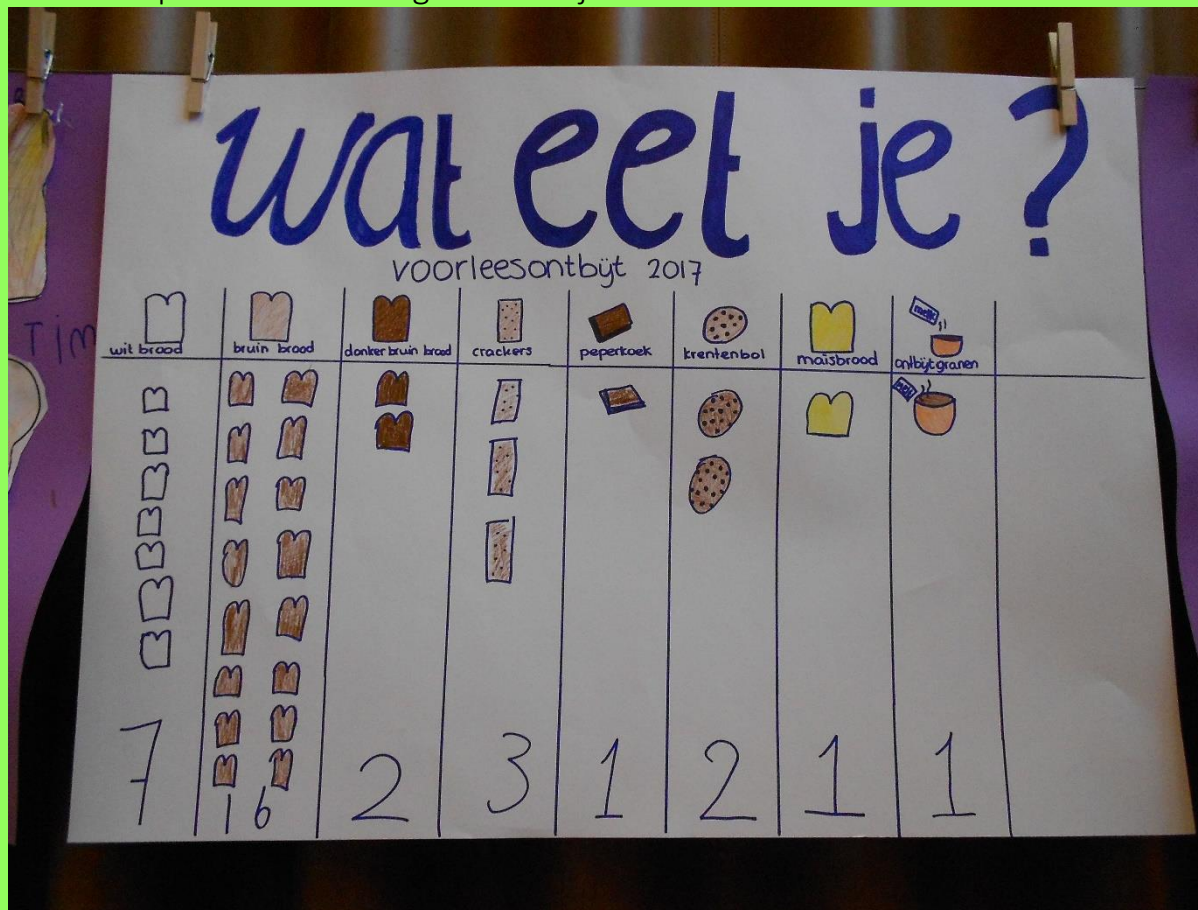 wat eet je ?
voorleesontbijt 2017
wit brood bruin brood donker bruin brood crackers peperkoek krentenbol maisbrood ontbijtgranen
melk
7 16 2 3 1 2 1 1
Tim